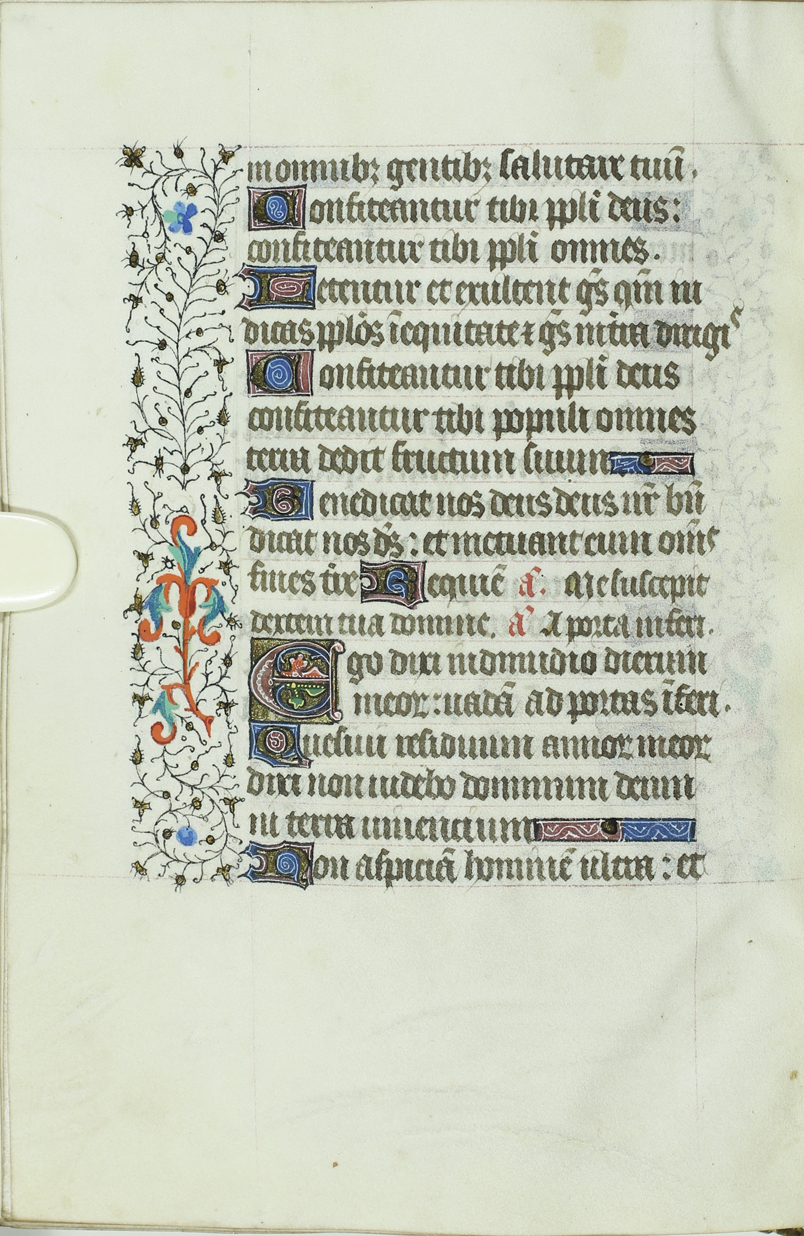 in omnibꝫ gentibꝫ salutare tuū.
Confiteantur tibi ppl̄i deus:
confiteantur tibi ppl̄i omnes.
Letentur et exultent gēs qm̄ iu
dicas ppl̄os ī equitate ⁊ gēs in t̄ra dirigis
Confiteantur tibi ppl̄i deus
confiteantur tibi populi omnes
terra dedit fructum suum
Benedicat nos deus deus nr̄ bn̄
dicat nos ds̄: et metuant eum om̄s
fines t̄re Requiē a͂. Me suscepit
dextera tua domine. a͂ A porta inferi.
Ego dixi in dimidio dierum
meoꝝ: uadā ad portas īferi.
Quesiui residuum annoꝝ meoꝝ
dixi non uidebo dominum deum
in terra uiuencium
Non aspiciā hominē ultra: et